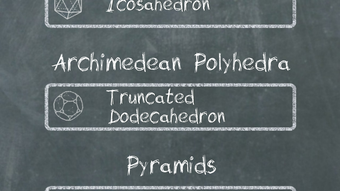 Icosahedron
Archimedean Polyhedra
Truncated
Dodecahedron
Pyramids